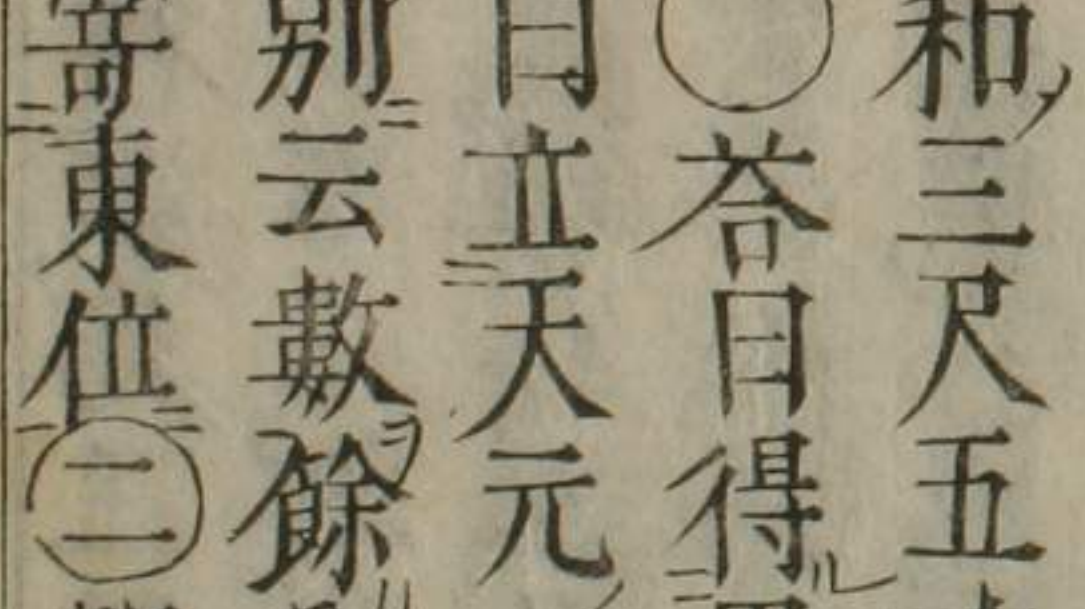 和三尺五
○答曰得
曰立天元
別云數餘
寄東位㊁